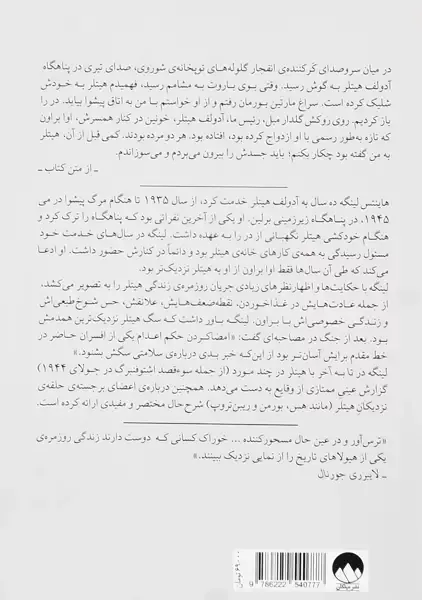 در میان سروصدای کرکننده‌ی انفجار گلوله‌های توپخانه‌ی شوروی، صدای تیری در پناهگاه
آدولف هیتلر به گوش رسید. وقتی بوی باروت به مشامم رسید، فهمیدم هیتلر به خودش
شلیک کرده است. سراغ مارتین بورمان رفتم و از او خواستم با من به اتاق پیشوا بیاید. در را
باز کردیم. روی روکش گلدار مبل، رئیس ما، آدولف هیتلر، خونین در کنار همسرش، اوا براون
که تازه به‌طور رسمی با او ازدواج کرده بود، افتاده بود. هر دو مرده بودند. کمی قبل از آن، هیتلر
به من گفته بود چکار بکنم؛ باید جسدش را بیرون می‌بردم و می‌سوزاندم.
ـ از متن کتاب ـ
هاینتس لینگه ده سال به آدولف هیتلر خدمت کرد، از سال ۱۹۳۵ تا هنگام مرگ پیشوا در می
۱۹۴۵، در پناهگاه زیرزمینی برلین. او یکی از آخرین نفراتی بود که پناهگاه را ترک کرد و
هنگام خودکشی هیتلر نگهبانی از در را به عهده داشت. لینگه در سال‌های خدمت خود
مسئول رسیدگی به همه‌ی کارهای خانه‌ی هیتلر بود و دائماً در کنارش حضور داشت. او ادعا
می‌کند که طی آن سال‌ها فقط اوا براون از او به هیتلر نزدیک‌تر بود.
لینگه با حکایت‌ها و اظهارنظرهای زیادی جریان روزمره‌ی زندگی هیتلر را به تصویر می‌کشد،
از جمله عادت‌هایش در غذاخوردن، نقطه‌ضعف‌هایش، علائقش، حس شوخ‌طبعی‌اش
و زندگی خصوصی‌اش با براون. لینگه باور داشت که سگ هیتلر نزدیک‌ترین همدمش
بود. بعد از جنگ در مصاحبه‌ای گفت: «امضاکردن حکم اعدام یکی از افسران حاضر در
خط مقدم برایش آسان‌تر بود از این‌که خبر بدی درباره‌ی سلامتی سگش بشنود.»
لینگه در تا به آخر با هیتلر در چند مورد (از جمله سوءقصد اشتوفنبرگ در جولای ۱۹۴۴)
گزارش عینی ممتازی از وقایع به دست می‌دهد. همچنین درباره‌ی اعضای برجسته‌ی حلقه‌ی
نزدیکان هیتلر (مانند هس، بورمن و ریبن‌تروپ) شرح‌حال مختصر و مفیدی ارائه کرده است.
«ترس‌آور و در عین حال مسحورکننده ... خوراک کسانی که دوست دارند زندگی روزمره‌ی
یکی از هیولاهای تاریخ را از نمایی نزدیک ببینند.»
ـ لایبرری جورنال
۶۹۰۰۰ تومان
9 786222 540777
نشر میلکان